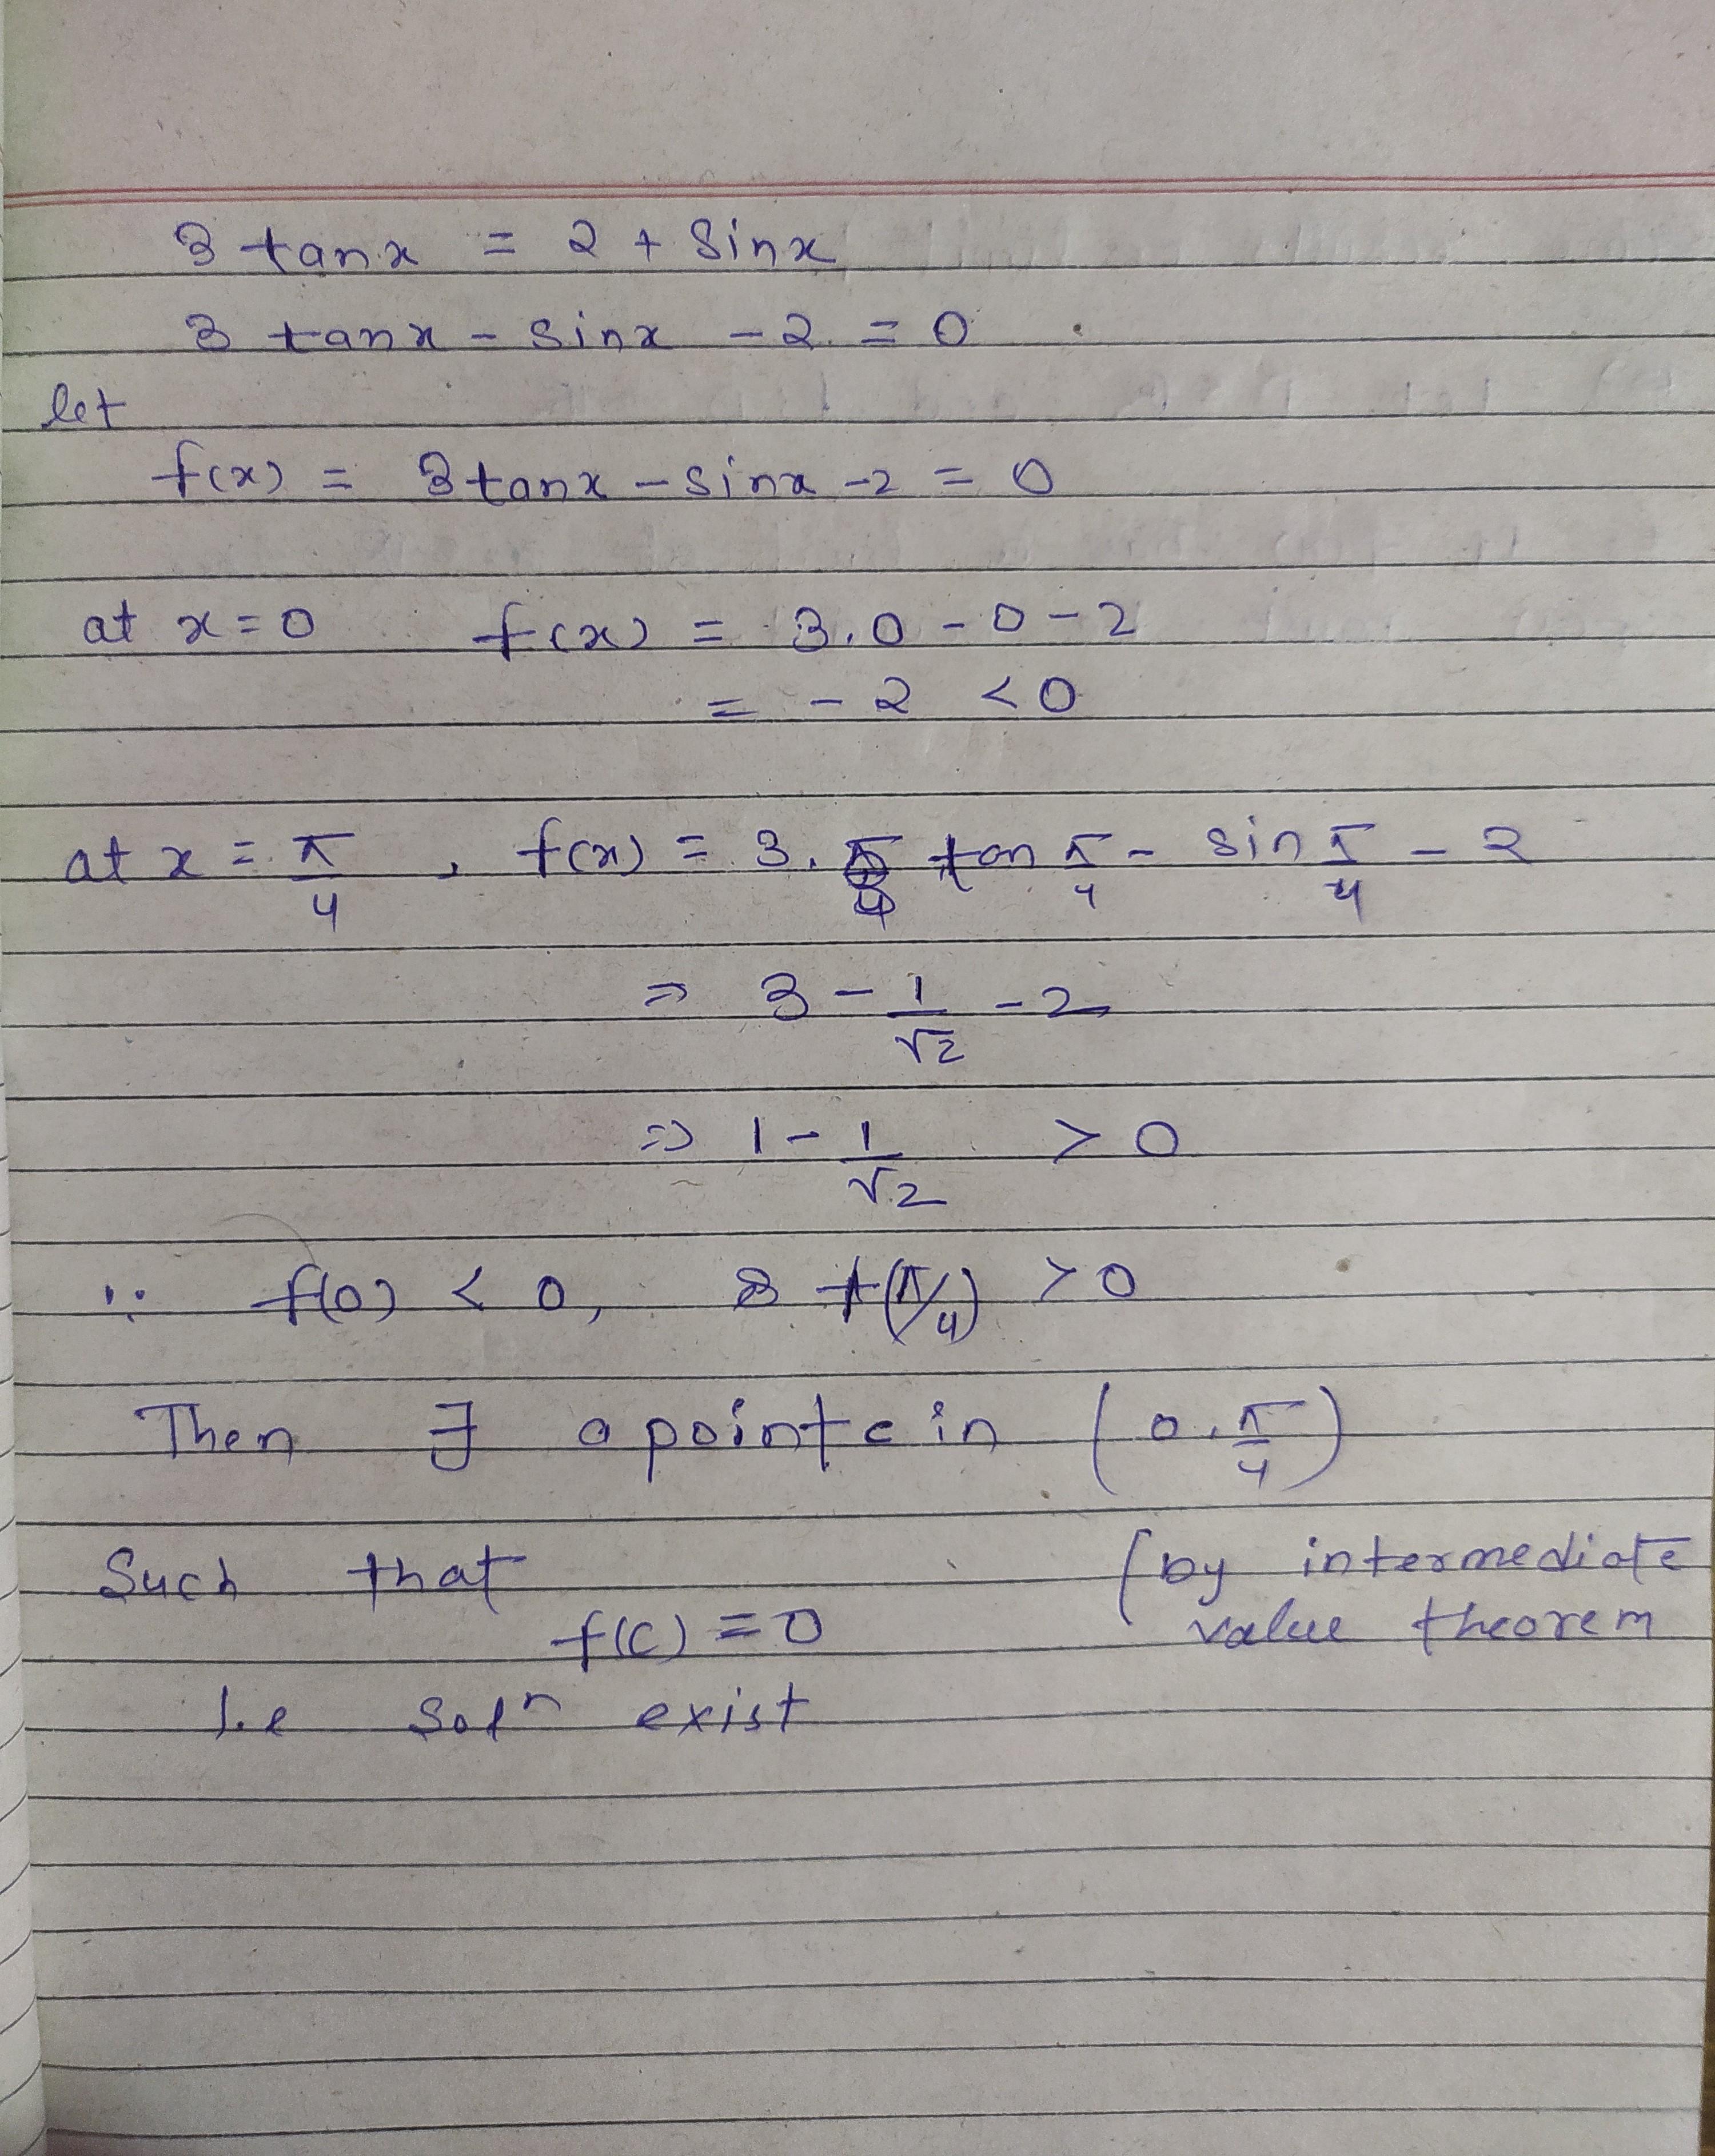 3 tan x = 2 + sin x
3 tan x - sin x - 2 = 0
let
f(x) = 3 tan x - sin x - 2 = 0
at x = 0 f(x) = 3.0 - 0 - 2
= -2 < 0
at x = π/4 , f(x) = 3. tan π/4 - sin π/4 - 2
⇒ 3 - 1/√2 - 2
⇒ 1 - 1/√2 > 0
∵ f(0) < 0, & f(π/4) > 0
Then ∃ a point c in (0, π/4)
Such that (by intermediate
f(c) = 0 value theorem
i.e solⁿ exist